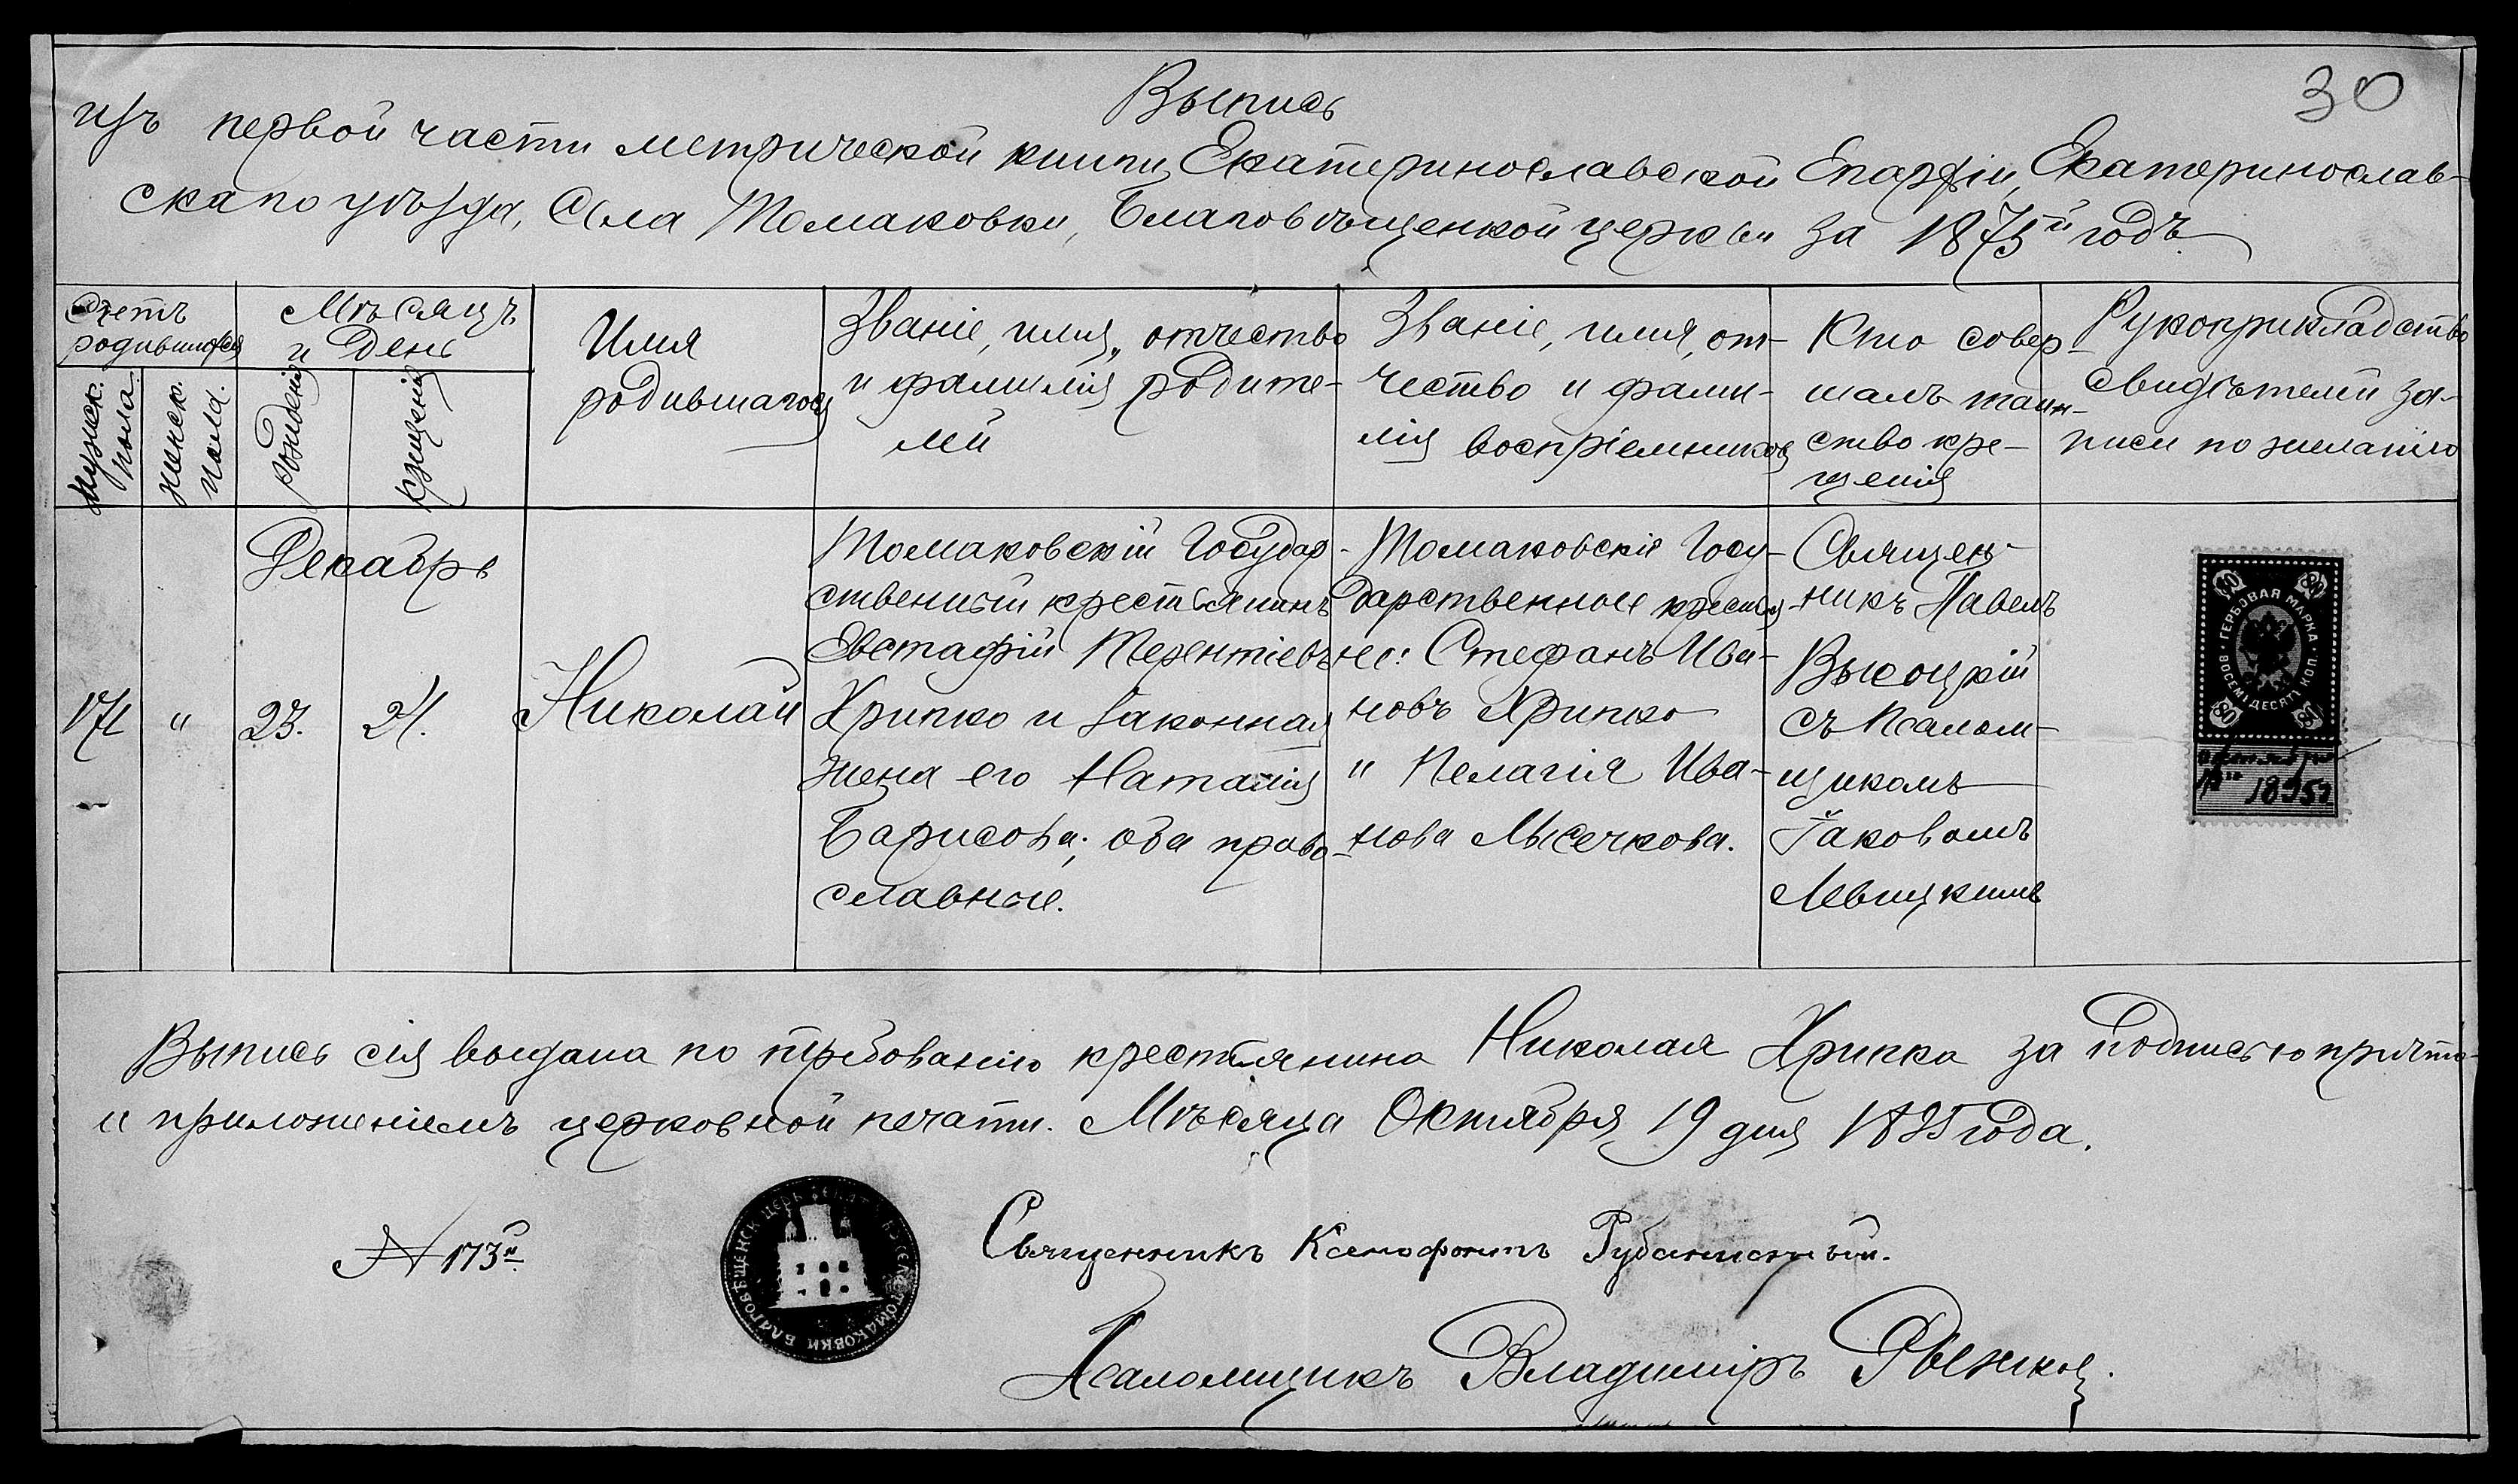 30
Выпись
изъ первой части метрической книги, Екатеринославской Епархіи, Екатеринослав-
скаго уѣзда, Села Томаковки, Благовѣщенской церкви за 1875й годъ.
Счетъ
родившихся
Мужск.
пола.
Женск.
пола.
Мѣсяцъ
и День
рожденія
крещенія
Имя
родившагося
Званіе, имя, отчество
и фамилія родите-
лей
Званіе, имя, от-
чество и фами-
лія воспріемниковъ
Кто совер-
шалъ таин-
ство кре-
щенія
Рукоприкладство
свидѣтелей за-
писи по желанію
Декабрь
171
"
23.
24.
Николай
Томаковскій Государ-
ственный крестьянинъ
Евстафій Терентіевъ
Хрипко и законная
жена его Наталія
Борисова; оба право-
славные.
Томаковскіе Госу-
дарственные крестья-
не: Стефанъ Ива-
новъ Хрипко
" Пелагія Ива-
нова Лысечкова.
Священ-
никъ Павелъ
Высоцкій
съ Псалом-
щикомъ
Іаковомъ
Левицкимъ
80 80
ГЕРБОВАЯ МАРКА
ВОСЕМЬДЕСЯТЪ КОП.
80 80
октября
19го 1895 г
Выпись сія выдана по требованію крестьянина Николая Хрипка за подписью причта
и приложеніемъ церковной печати. Мѣсяца Октября 19 дня 1895 года.
N 173й
БЛАГОВѢЩЕНСК ЦЕРК ТОМАКОВКИ
Священникъ Ксенофонтъ
Псаломщикъ Владимиръ Рыжков.